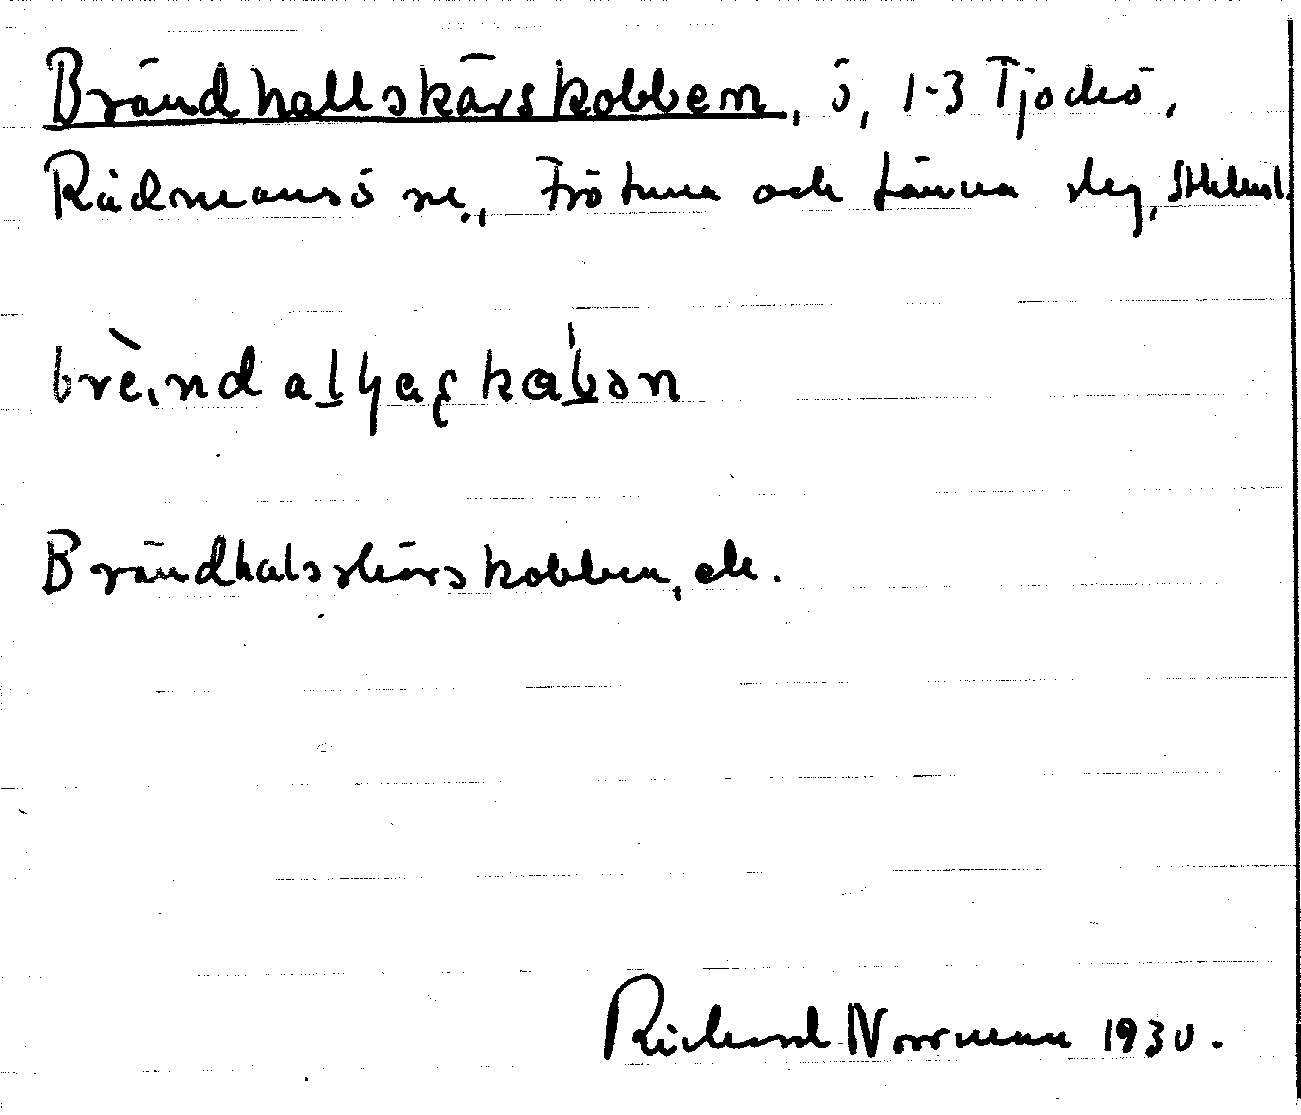 Brändhallskärskobben, ö, 1-3 Tjockö,
Rådmansö sn., Frötuna och Länna slg, Sthlmsl.
brèndalʃyaʂkabən
Brändhalsskärskobben, ek.
Rickard Norrman 1930.